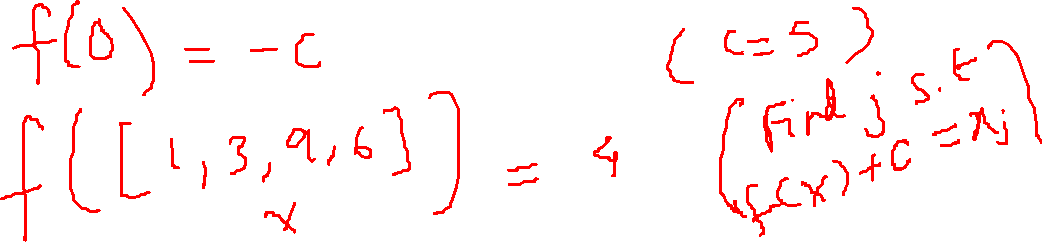 f(0) = -c (c=5)
f([1,3,9,6]) = 4 (Find j s.t
x f(x)+c = xj)